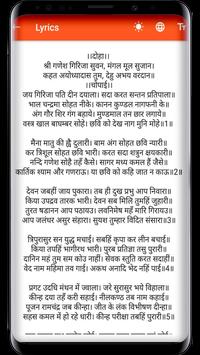 Lyrics
।।दोहा।।
श्री गणेश गिरिजा सुवन, मंगल मूल सुजान।
कहत अयोध्यादास तुम, देहु अभय वरदान।।
।।चौपाई।।
जय गिरिजा पति दीन दयाला। सदा करत सन्तन प्रतिपाला।।
भाल चन्द्रमा सोहत नीके। कानन कुण्डल नागफनी के।।
अंग गौर शिर गंग बहाये। मुण्डमाल तन छार लगाये।।
वस्त्र खाल बाघम्बर सोहे। छवि को देख नाग मुनि मोहे।।1
मैना मातु की ह्वै दुलारी। बाम अंग सोहत छवि न्यारी।।
कर त्रिशूल सोहत छवि भारी। करत सदा शत्रुन क्षयकारी।।
नन्दि गणेश सोहे तहँ कैसे। सागर मध्य कमल हैं जैसे।।
कार्तिक श्याम और गणराऊ। या छवि को कहि जात न काऊ।।2
देवन जबहीं जाय पुकारा। तब ही दुख प्रभु आप निवारा।।
किया उपद्रव तारक भारी। देवन सब मिलि तुमहिं जुहारी।।
तुरत षडानन आप पठायउ। लवनिमेष महँ मारि गिरायउ।।
आप जलंधर असुर संहारा। सुयश तुम्हार विदित संसारा।।3
त्रिपुरासुर सन युद्ध मचाई। सबहिं कृपा कर लीन बचाई।।
किया तपहिं भागीरथ भारी। पुरब प्रतिज्ञा तसु पुरारी।।
दानिन महं तुम सम कोउ नाहीं। सेवक स्तुति करत सदाहीं।।
वेद नाम महिमा तव गाई। अकथ अनादि भेद नहिं पाई।।4
प्रगट उदधि मंथन में ज्वाला। जरे सुरासुर भये विहाला।।
कीन्ह दया तहँ करी सहाई। नीलकण्ठ तब नाम कहाई।।
पूजन रामचंद्र जब कीन्हा। जीत के लंक विभीषण दीन्हा।।
सहस कमल में हो रहे धारी। कीन्ह परीक्षा तबहिं पुरारी।।5